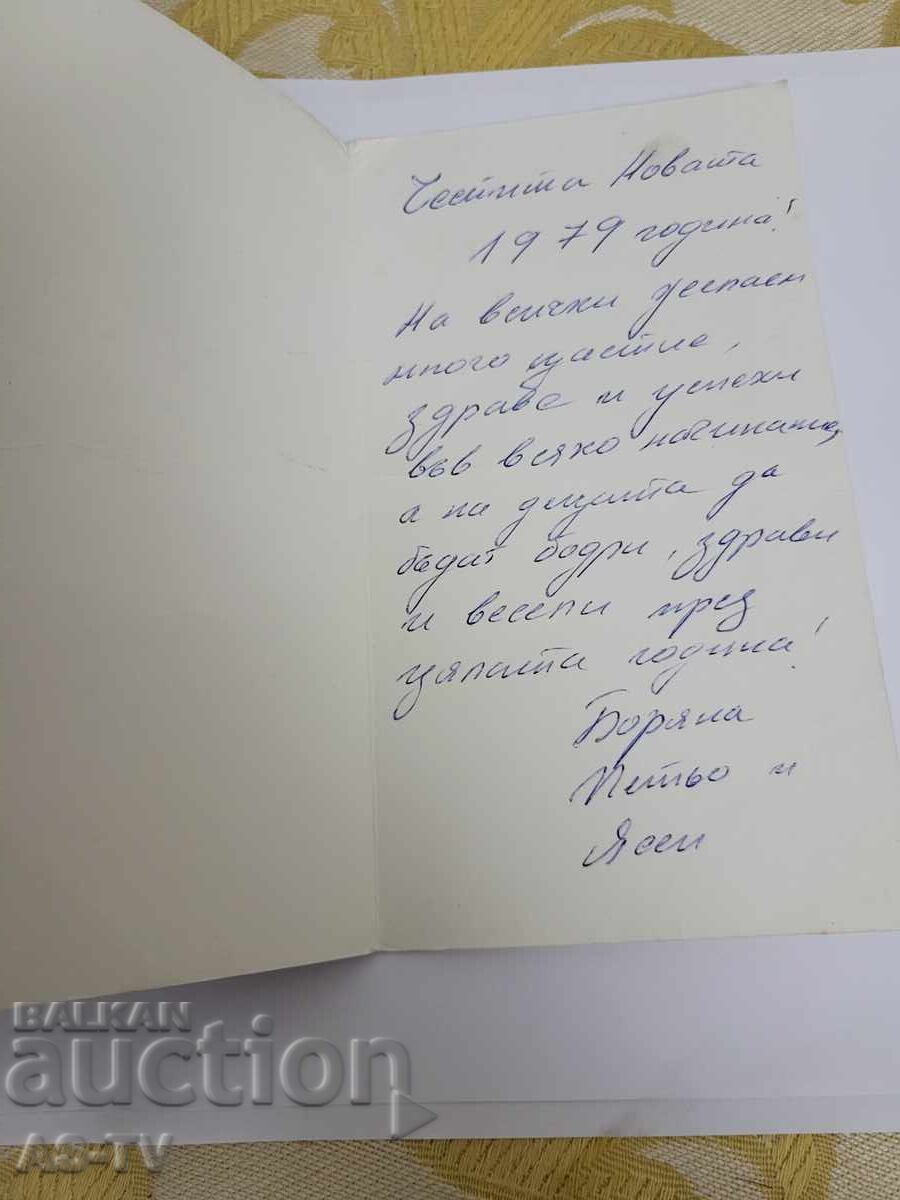 Честита Новата
1979 година!
На всички желаем
много щастие,
здраве и успехи
във всяко начинание,
а на децата да
бъдат бодри, здрави
и весели през
цялата година!
Боряна
Петьо и
Яси
BALKAN
auction
AS-TV